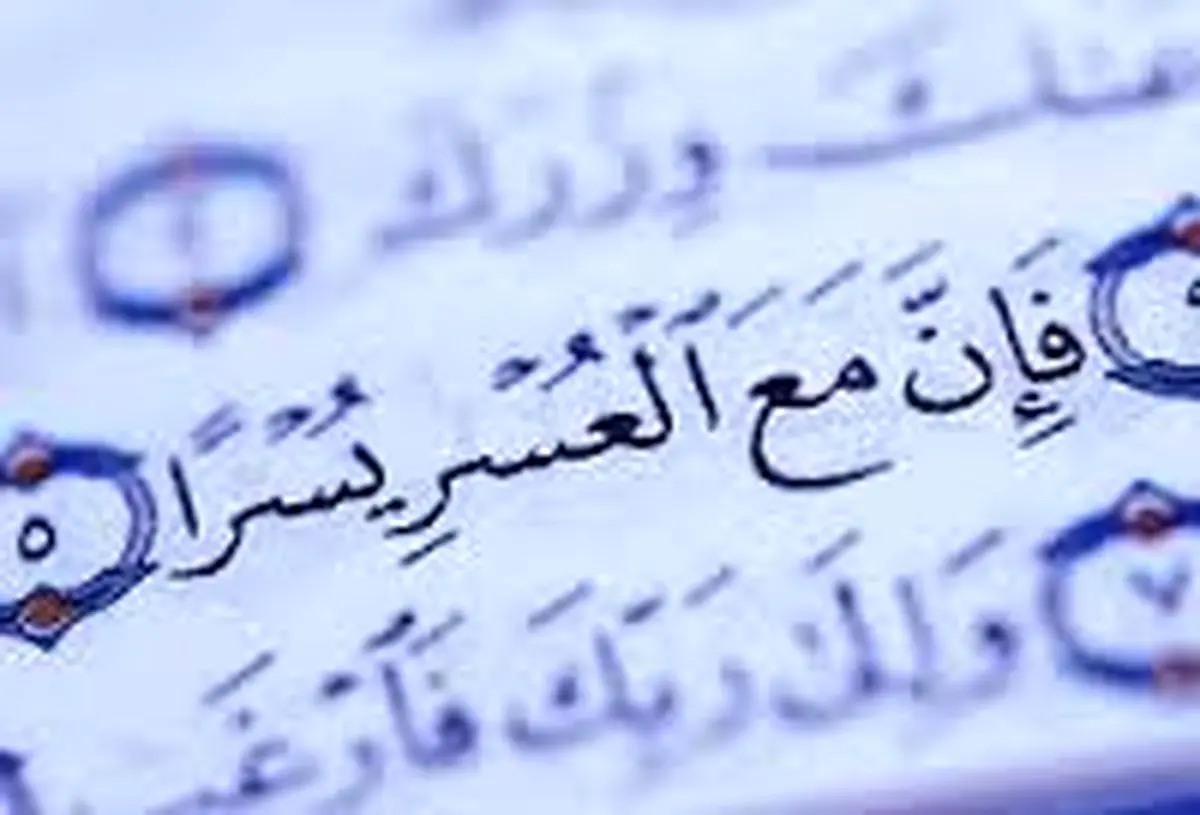 عنك وِزْرَكَ
فَإِنَّ مَعَ ٱلْعُسْرِ يُسْرًا ٥
٧ وَإِلَىٰ رَبِّكَ فَٱرْغَب